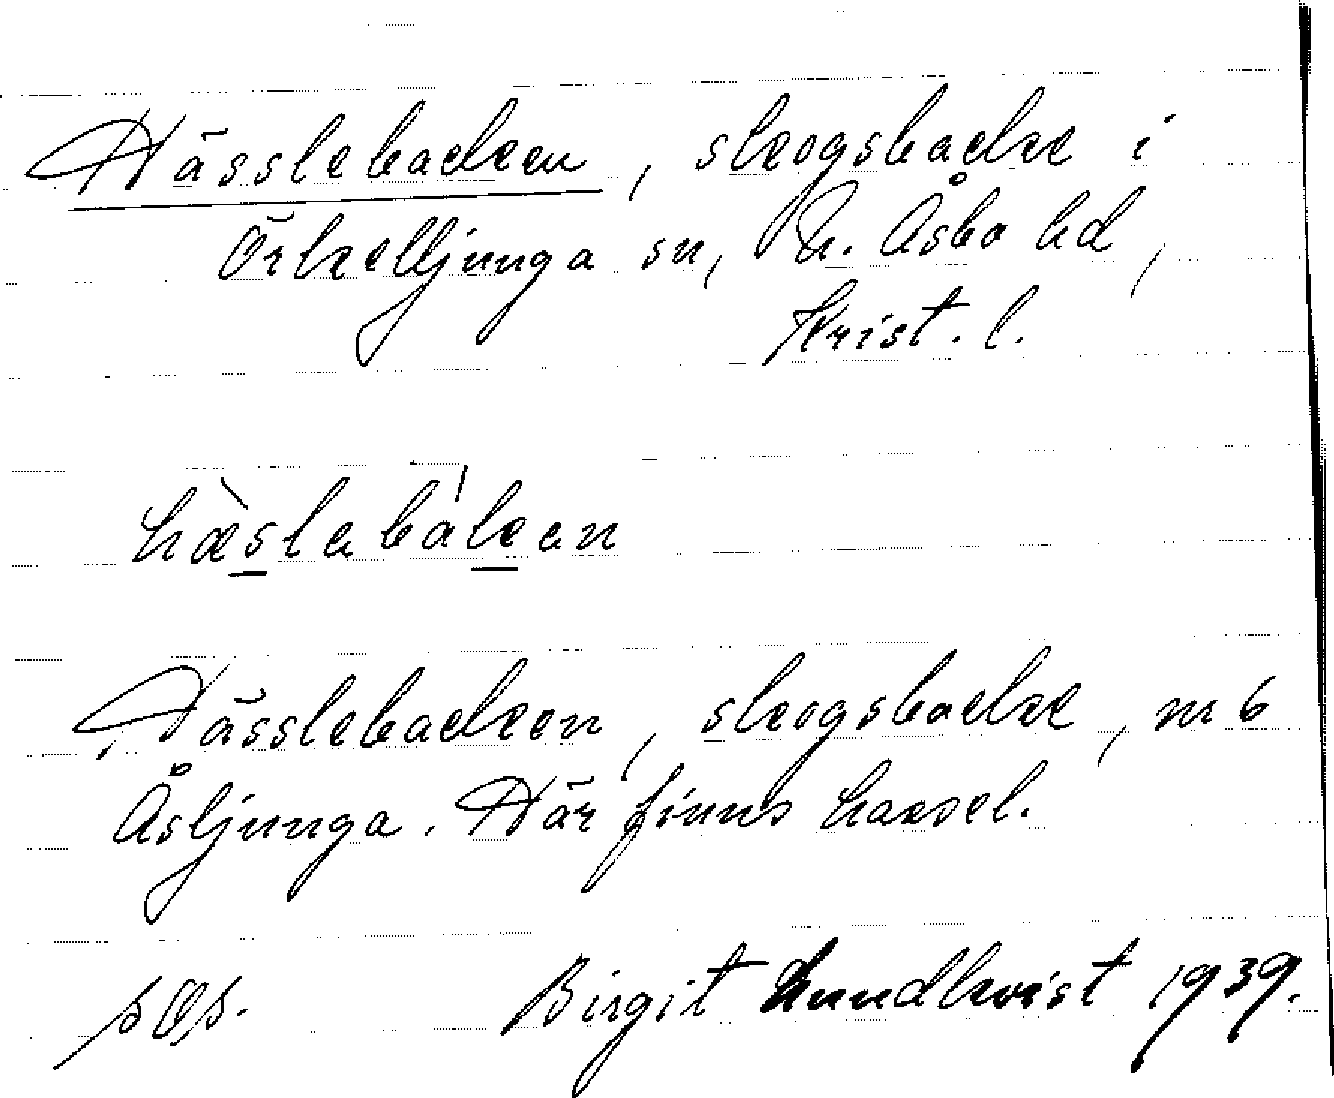 Hässlebacken, skogsbacke i
Örkelljunga sn, N. Åsbo hd,
Krist. l.
hæ̀sleba̍ken
Hässlebacken, skogsbacke, m 6
Åsljunga. Där finns hassel.
Birgit Lundkvist 1939.